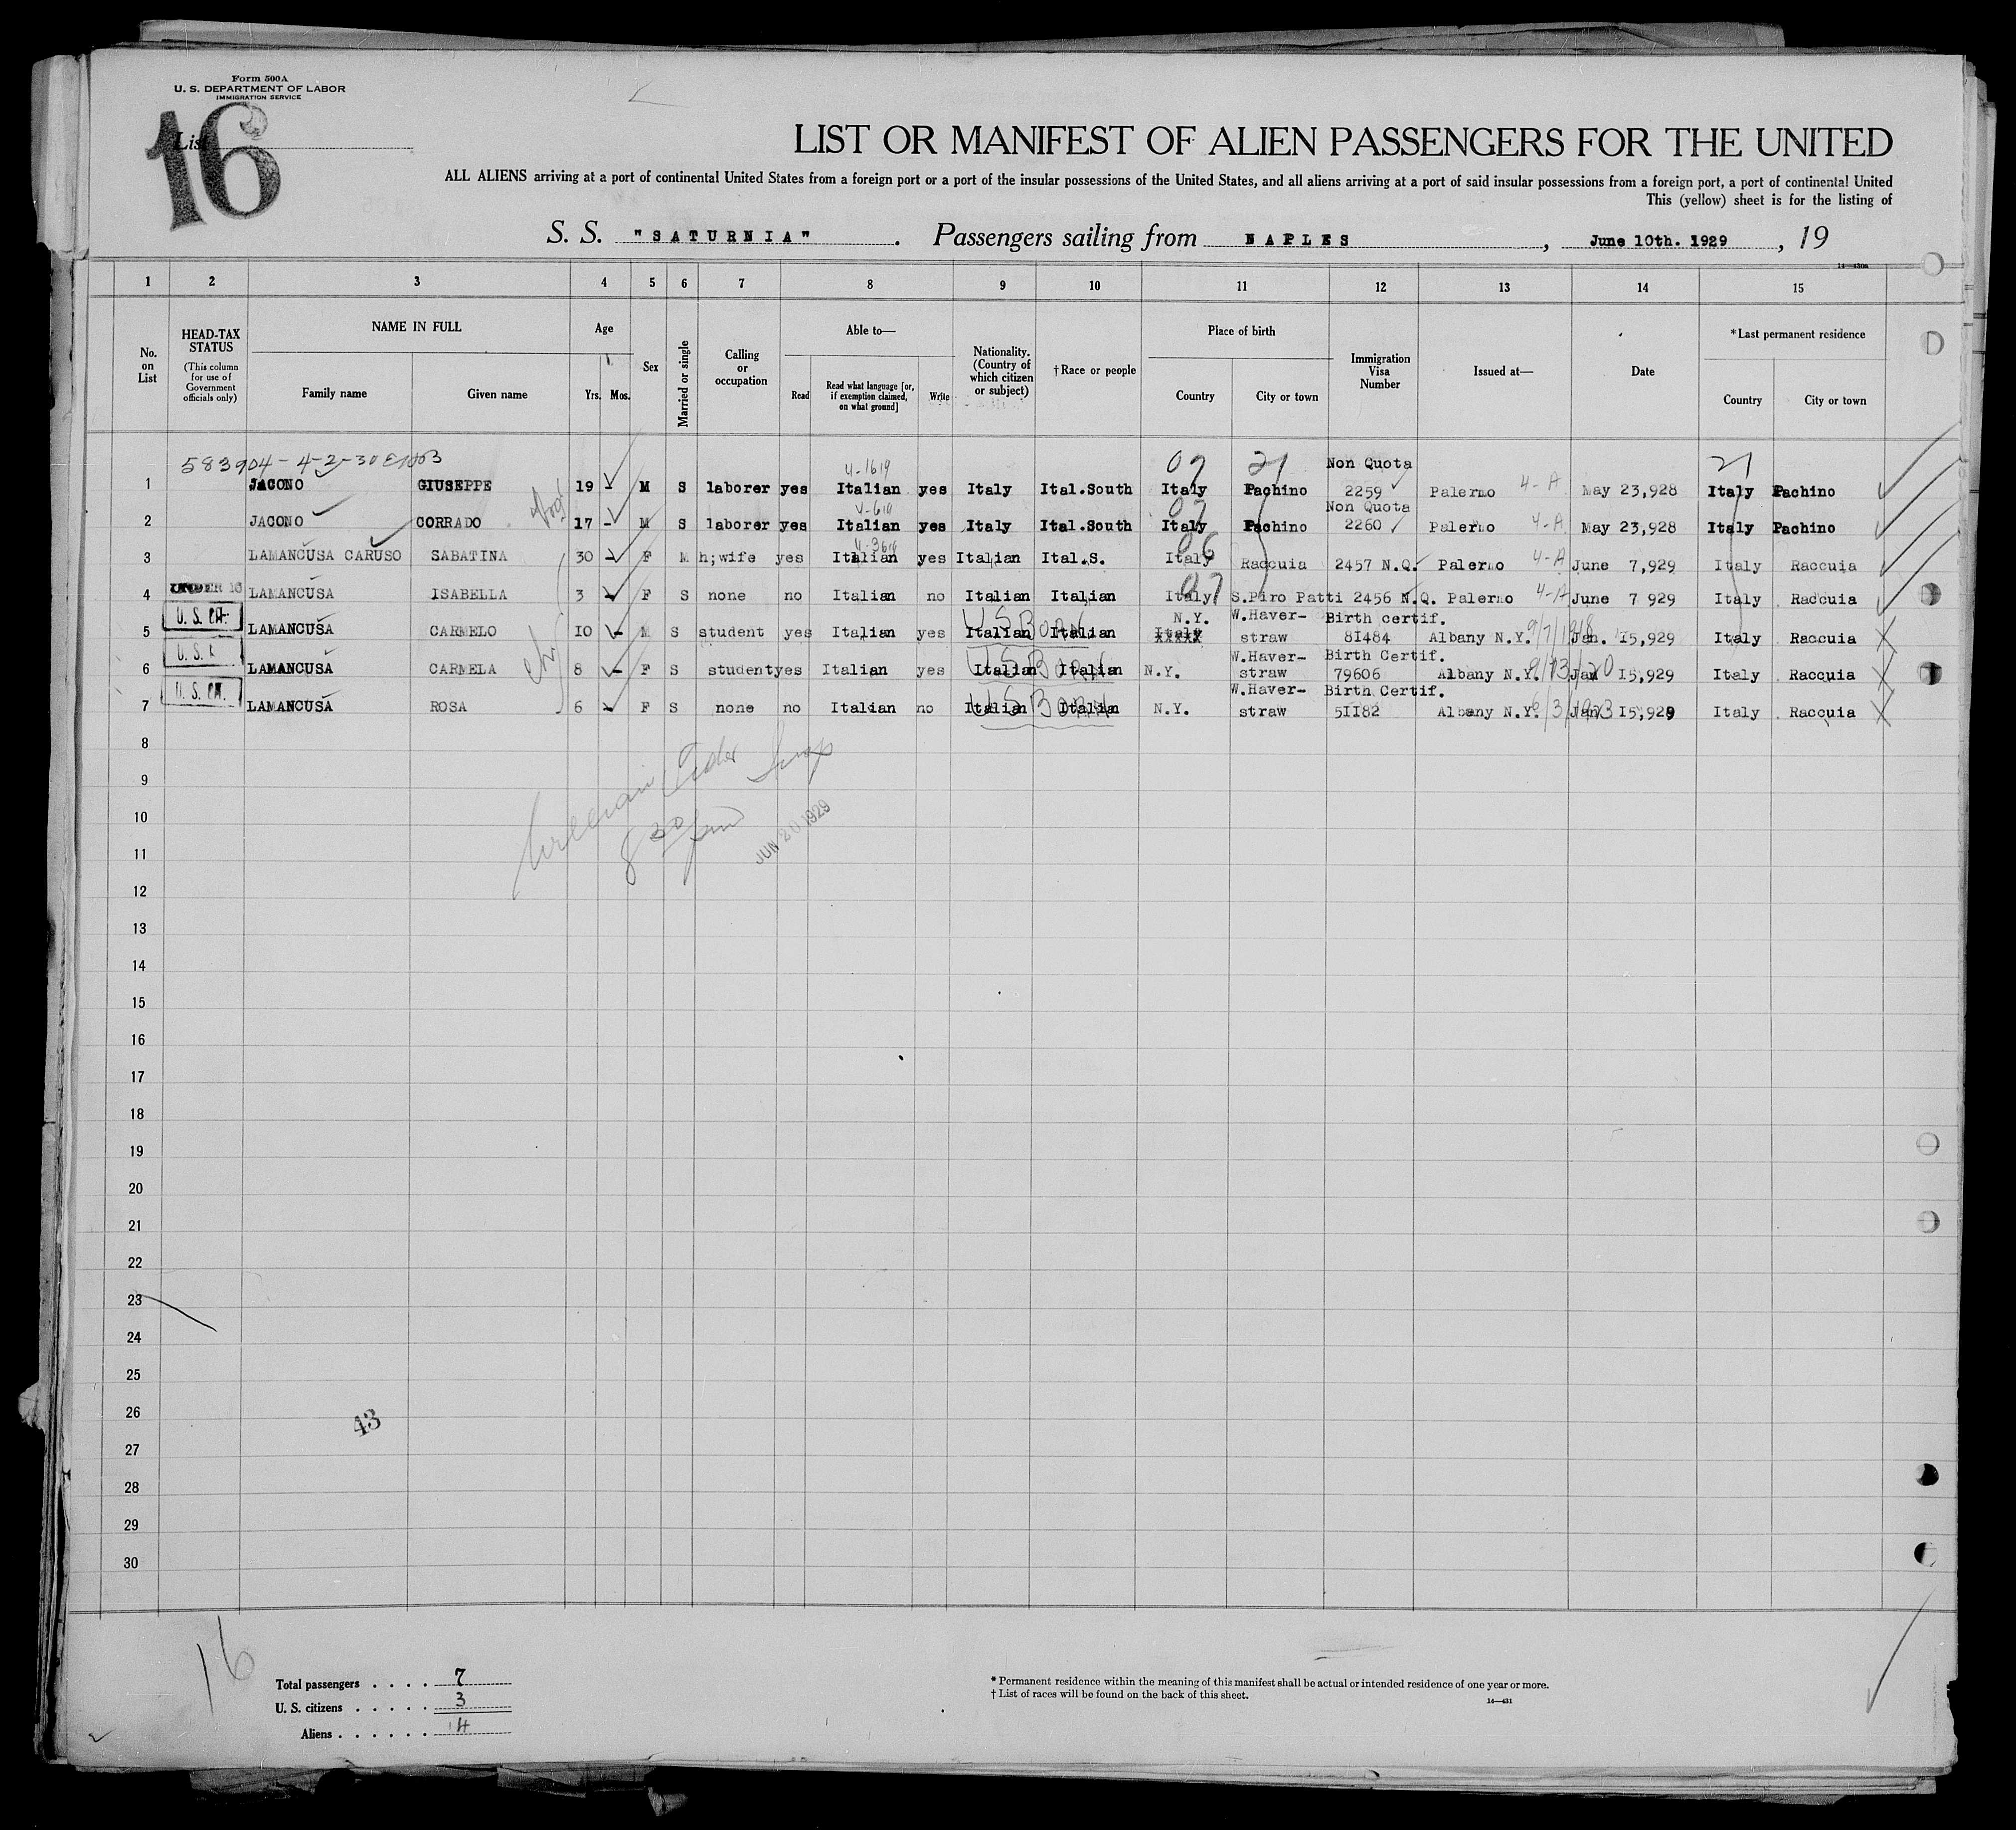 Form 500A
U. S. DEPARTMENT OF LABOR
IMMIGRATION SERVICE
List
16
LIST OR MANIFEST OF ALIEN PASSENGERS FOR THE UNITED
ALL ALIENS arriving at a port of continental United States from a foreign port or a port of the insular possessions of the United States, and all aliens arriving at a port of said insular possessions from a foreign port, a port of continental United
This (yellow) sheet is for the listing of
S. S. "SATURNIA" . Passengers sailing from NAPLES , June 10th. 1929 , 19
14—430a
1 2 3 4 5 6 7 8 9 10 11 12 13 14 15
No. on List
HEAD-TAX STATUS
(This column for use of Government officials only)
NAME IN FULL
Family name Given name
Age
Yrs. Mos.
Sex
Married or single
Calling or occupation
Able to—
Read Read what language [or, if exemption claimed, on what ground] Write
Nationality. (Country of which citizen or subject)
†Race or people
Place of birth
Country City or town
Immigration Visa Number
Issued at—
Date
*Last permanent residence
Country City or town
583904 - 4-2-30 4-1619 07 21 Non Quota 21
1 JACONO GIUSEPPE 19 - M S laborer yes Italian yes Italy Ital.South Italy Pachino 2259 Palermo 4-A May 23,928 Italy Pachino
Non Quota
2 JACONO CORRADO 17 - M S laborer yes Italian yes Italy Ital.South Italy Pachino 2260 Palermo 4-A May 23,928 Italy Pachino
3 LAMANCUSA CARUSO SABATINA 30 - F M h;wife yes Italian yes Italian Ital.S. Italy 06 Raccuia 2457 N.Q. Palermo 4-A June 7,929 Italy Raccuia
UNDER 16
4 LAMANCUSA ISABELLA 3 - F S none no Italian no Italian Italian Italy 07 S.Piro Patti 2456 N.Q. Palermo 4-A June 7 929 Italy Raccuia
U. S. CIT. US Born N.Y. W.Haver- Birth certif.
5 LAMANCUSA CARMELO 10 - M S student yes Italian yes Italian Italian Italy xxxxx straw 81484 Albany N.Y. 9/7/1918 Jan. 15,929 Italy Raccuia
U. S. C US Born W.Haver- Birth Certif.
6 LAMANCUSA CARMELA 8 - F S student yes Italian yes Italian Italian N.Y. straw 79606 Albany N.Y. Jan 15,929 Italy Raccuia
U. S. CIT. US Born W.Haver- Birth Certif.
7 LAMANCUSA ROSA 6 - F S none no Italian no Italian Italian N.Y. straw 51182 Albany N.Y. Jan. 15,929 Italy Raccuia
8
9
8 30 pm
JUN 20 1929
10
11
12
13
14
15
16
17
18
19
20
21
22
23
24
25
26
43
27
28
29
30
16
Total passengers . . . . 7
U. S. citizens . . . . . 3
Aliens . . . . . . 4
* Permanent residence within the meaning of this manifest shall be actual or intended residence of one year or more.
† List of races will be found on the back of this sheet.
14—431